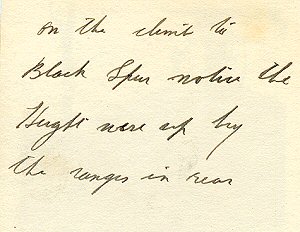 on the climb to
Black Spur notice the
Height were up by
the ranges in rear